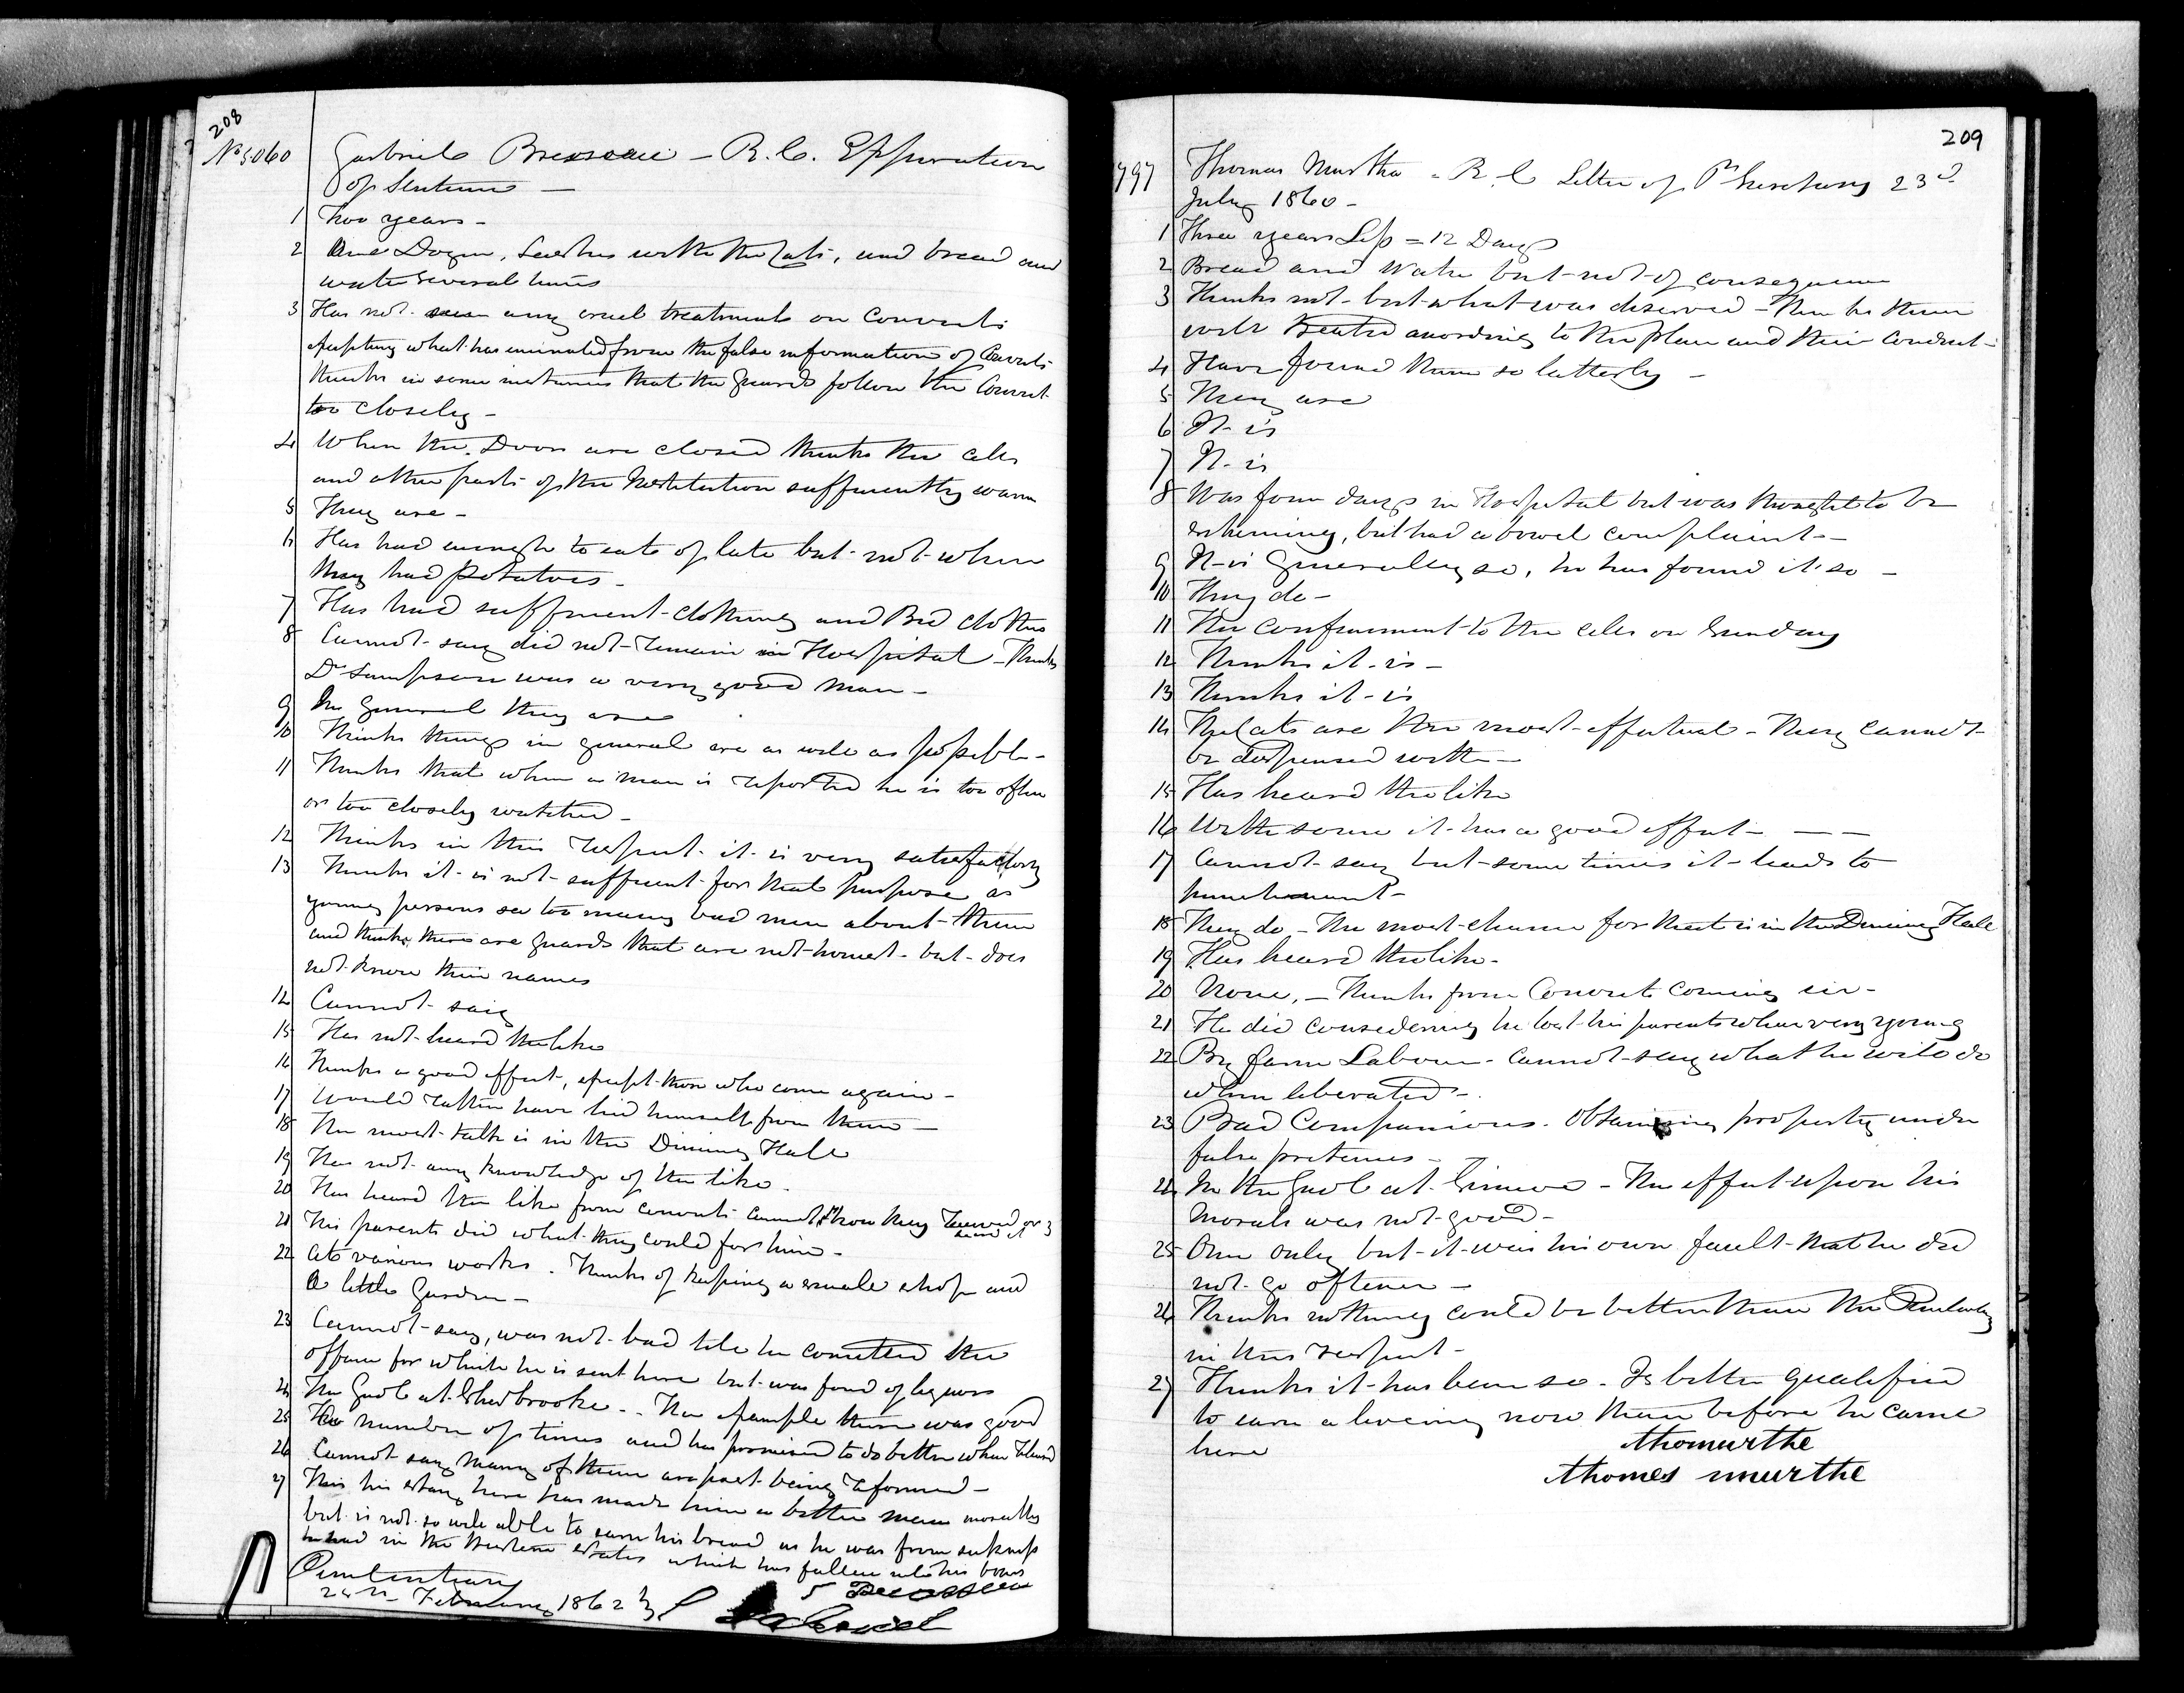 208
No 5060 Gabriel Brosseau - R.C. Expiration
of Sentence -
1 Two years -
2 One Dozen, lashes with the Cats, and bread and
water several times
3 Has not seen any cruel treatment on Convicts
excepting what has eminated from the false information of Convicts
thinks in some instances that the Guards follow the Convict
too closely -
4 When the Doors are closed thinks the cells
and other parts of the Institution sufficiently warm
5 They are -
6 Has had enough to eat of late but not when
they had Potatoes -
7 Has had sufficient clothing and Bed clothes
8 Cannot say did not remain in Hospital - Thinks
Dr Sampson was a very good man -
9 In General they are
10 Thinks things in general are as well as possible -
11 Thinks that when a man is reported he is too often
or too closely watched -
12 Thinks in this respect it is very satisfactory
13 Thinks it is not sufficient for that purpose as
young persons see too many bad men about them
and thinks there are guards that are not honest - but does
not know their names
14 Cannot say
15 Has not heard the like
16 Thinks a good effect, except those who come again -
17 Would rather have hid himself from them -
18 The most talk is in the Dining Hall
19 Has not any knowledge of the like -
20 Has heard the like from convicts cannot show they received or
heard it
21 His parents did what they could for him -
22 At various works. Thinks of keeping a small shop and
a little Garden -
23 Cannot say, was not bad till he comitted the
offence for which he is sent here but was fond of liquors
24 The Gaol at Sherbrooke - The example there was good
25 number of times and has promised to do better when released
26 Cannot say many of them are past being reformed -
27 This his stay here has made him a better man morally
but is not so well able to earn his bread as he was from sickness
he had in the Western States which has fallen into his bones
Penitentiary
February 1862
209
797 Thomas Murtha - R.C. Letter of Pl Secretary 23d
July 1860 -
1 Three years Less = 12 Days
2 Bread and Water but not of consequence
3 Thinks not - but what was deserved - Thinks them
well treated according to the place and their conduct -
4 Have found them so latterly -
5 They are
6 It is
7 It is
8 Was four days in Hospital but was thought to be
scheming, but had a bowel complaint -
9 It is Generally so, he has found it so -
10 They do -
11 The confinement to the cells on Sunday
12 Thinks it is -
13 Thinks it is
14 The Cats are the most effectual - They cannot
be dispensed with -
15 Has heard the like
16 With some it has a good effect - - -
17 Cannot say but some times it leads to
punishment -
18 They do - The most chance for that is in the Dining Hall
19 Has heard the like -
20 None, - Thinks from Convicts coming in -
21 He did considering he lost his parents when very young
22 By farm Labour - Cannot say what he will do
when liberated -
23 Bad Companions. Obtaining property under
false pretences -
24 In the Gaol at Simcoe - The effect upon his
Morals was not good -
25 Once only but it was his own fault that he did
not go oftener -
26 Thinks nothing could be better than the Penitentiary
in this respect -
27 Thinks it has been so - Is better qualified
to earn a liveing now than before he came
here
thomurthe
thomes murthe